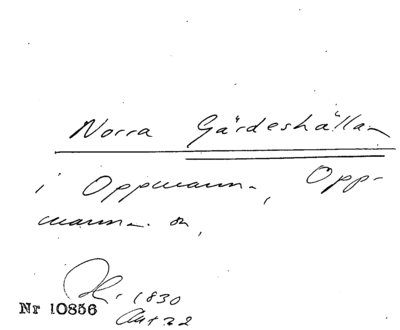 Norra Gärdeshällan
i Oppmanna, Opp-
manna sn,
R. 1830
Nr 10856
Akt 22